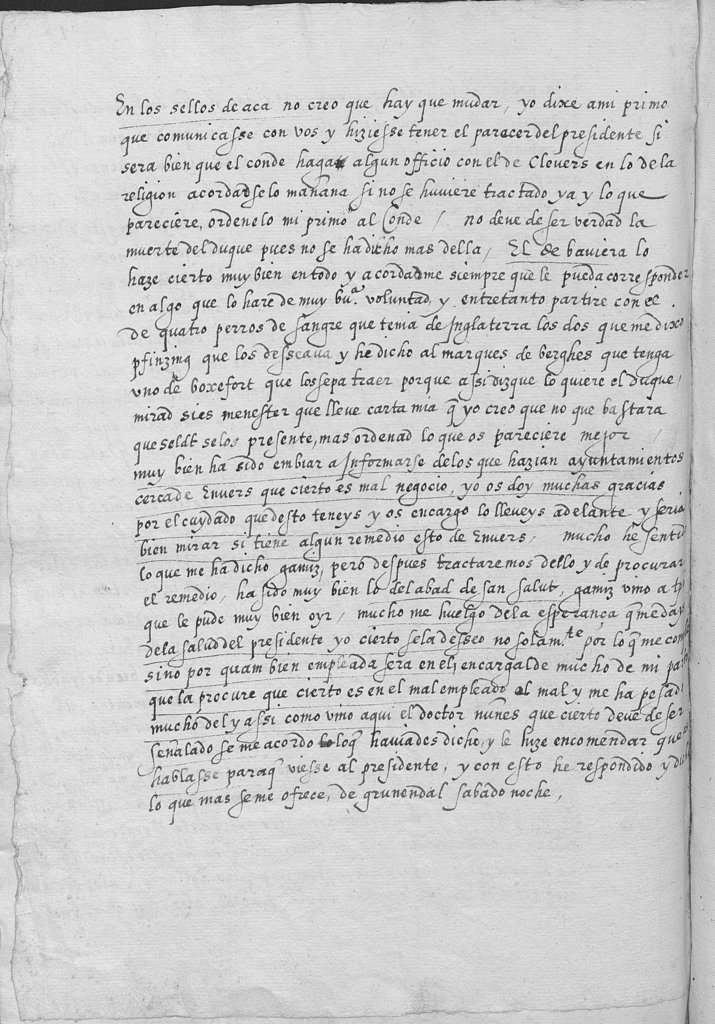 En los sellos de aca no creo que hay que mudar, yo dixe a mi primo
que comunicasse con vos y hiziesse tener el parecer del presidente si
sera bien que el conde haga algun officio con el de Clevers en lo de la
religion acordadselo mañana si no se huviere tractado ya y lo que
pareciere, ordenelo mi primo al Conde / no deve de ser verdad la
muerte del duque pues no se ha dicho mas della, El de baviera lo
haze cierto muy bien en todo y acordadme siempre que le pueda corresponder
en algo que lo hare de muy bu.ª voluntad, y entretanto partire con el
de quatro perros de sangre que tenia de Inglaterra los dos que me dixo
pfinzing que los desseava y he dicho al marques de berghes que tenga
uno de boxefort que los sepa traer porque assi dizque lo quiere el duque,
mirad si es menester que lleve carta mia q̄ yo creo que no que bastara
que seldt se los presente, mas ordenad lo que os pareciere mejor /
muy bien ha sido embiar a Informarse de los que hazian ayuntamientos
cerca de Envers que cierto es mal negocio, yo os doy muchas gracias
por el cuydado que desto teneys y os encargo lo lleveys adelante y seria
bien mirar si tiene algun remedio esto de Envers, mucho he senti
lo que me ha dicho gamiz, pero despues tractaremos dello y de procurar
el remedio, ha sido muy bien lo del abad de san salut, gamiz vino a
que le pude muy bien oyr, mucho me huelgo de la esperança q̄ me day
de la salud del presidente yo cierto se la desseo no solam.te por lo q̄ me
sino por quam bien empleada sera en el, encargalde mucho de mi pa
que la procure que cierto es en el mal empleado el mal y me ha pesad
mucho del y assi como vino aqui el doctor nunes que cierto deve de ser
señalado se me acordo lo q̄ haviades dicho, y le hize encomendar que
hablasse paraq̄ viesse al presidente, y con esto he respondido y
lo que mas se me ofrece, de grunendal sabado noche,